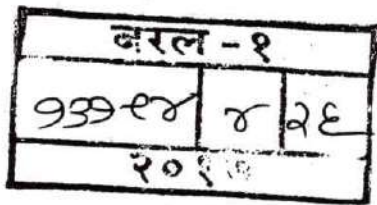 बरल - १
१३१९४ ४ २६
२०१७